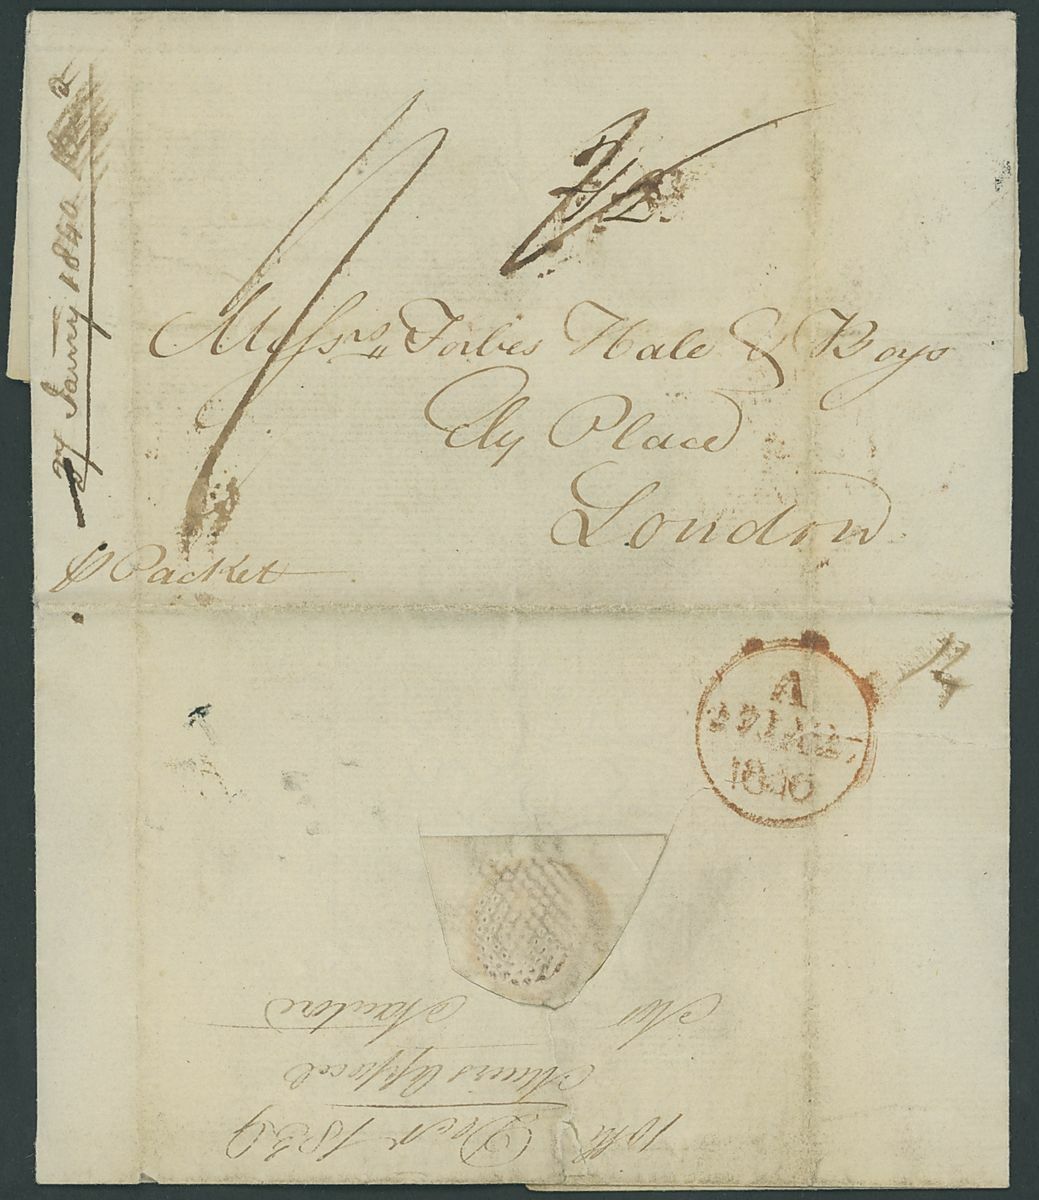 27 January 1840
Messrs Forbes Hale & Boys
Ely Place
London
P Packet
A
1840
10th Decr 1839
Appeal
Mr